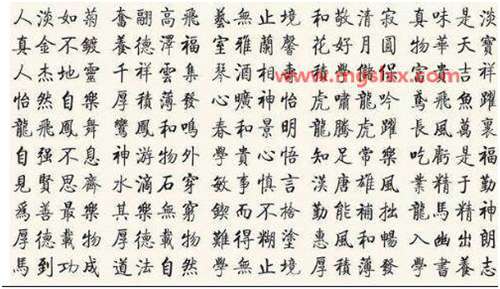 人淡如菊 奮翮高飛 藝無止境 和敬清寂 真味是淡
真金不鍍 養德澤福 室雅蘭馨 花好月圓 物華天寶
人杰地靈 千祥雲集 琴酒相 富貴吉祥
怡然自樂 厚積薄發 心曠神怡 虎嘯龍吟 鳶飛魚躍
龍飛鳳舞 鸞鳳和鳴 春和景明 龍騰虎躍 長風萬裏
自强不息 神游物外 學貴心悟 知足常樂 吃虧是福
見賢思齊 水滴石穿 敏事慎言 漢唐雄風 業精于勤
爲善最樂 其樂無窮 鍥而不捨 勤能補拙 龍馬精神
厚德載物 難得糊塗 惠風和暢 入幽出朗
馬到功成 道法自然 學無止境 厚積薄發 學書養志